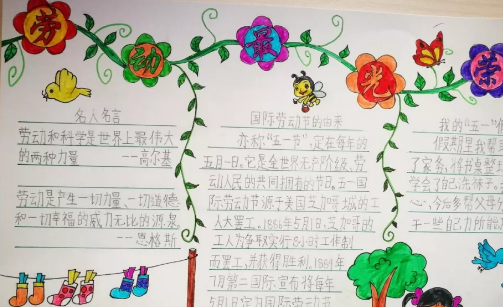 劳动最光荣
名人名言
劳动和科学是世界上最伟大
的两种力量 ——高尔基
劳动是产生一切力量、一切道德
和一切幸福的威力无比的源泉
——恩格斯
国际劳动节的由来
亦称"五一节",定在每年的
五月一日。它是全世界无产阶级、劳
动人民的共同拥有的节日。五一国
际劳动节源于美国芝加哥城的工
人大罢工。1886年5月1日,芝加哥的
工人为争取实行8小时工作制
而罢工,并获得胜利。1889年
7月第二国际宣布将每年
5月1日定为国际劳动节
我的"五一"
假期里我帮
了家务,将书桌整
学会了自己洗袜子
心,今后多帮父母分
干一些自己力所能